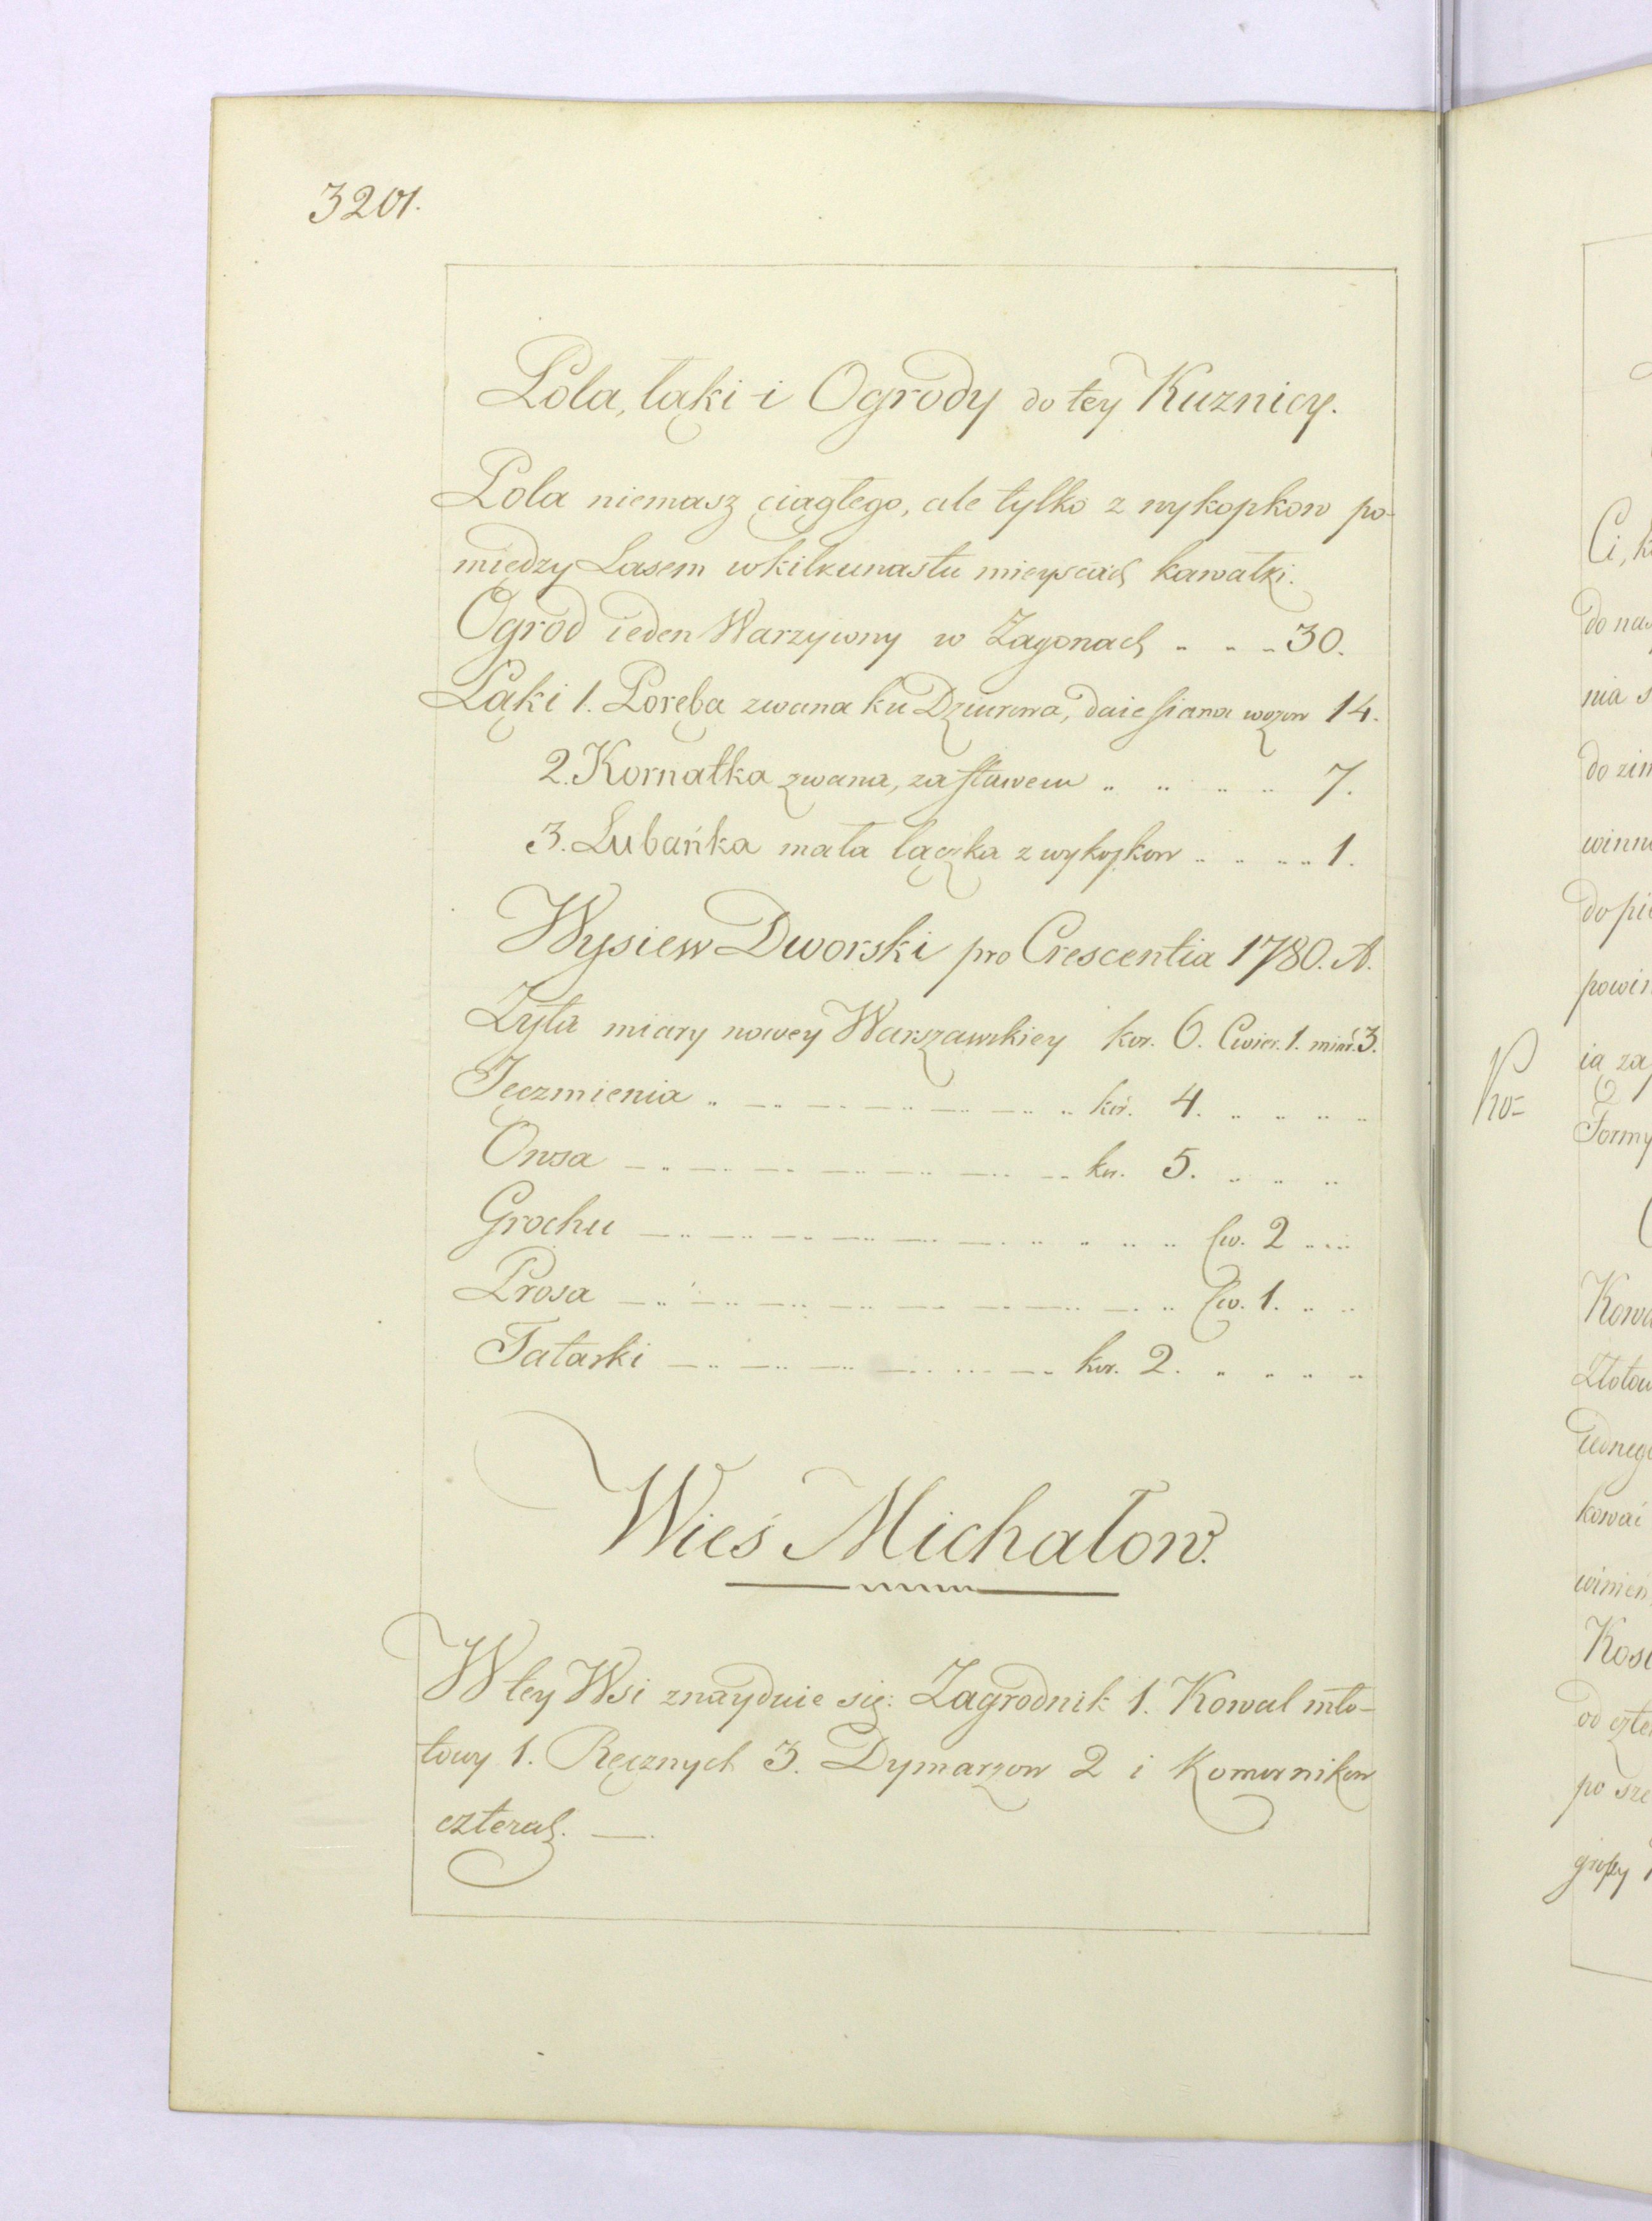 3201.
Pola, łąki i Ogrody do tey Kuznicy.
Pola niemasz ciągłego, ale tylko z wykopkow po-
między Lasem w kilkunastu mieyscach kawałki.
Ogrod ieden Warzywny w Zagonach .. .. .. 30.
Łąki 1. Poręba zwana ku Dziurowa, daie siana wozow 14.
2. Kornatka zwana, za stawem .. .. .. .. 7.
3. Lubańka mała łączka z wykopkow .. .. .. .. 1.
Wysiew Dworski pro Crescentia 1780. A.
Zyta miary nowey Warszawskiey kor. 6. Cwier. 1. miar. 3.
Jęczmienia kor. 4.
Owsa kor. 5.
Grochu Cw. 2
Prosa Cw. 1.
Tatarki kor. 2.
Wieś Michałow.
W tey Wsi znayduie się: Zagrodnik 1. Kowal mło-
towy 1. Ręcznych 3. Dymarzow 2 i Komornikow
czterech. —
Ci, k
do nas
nia s
do zim
winn
do pie
powin
ią zap
Formy
Kowa
Złotow
iednego
kować
winien
Kosi
od czte
po sze
groszy